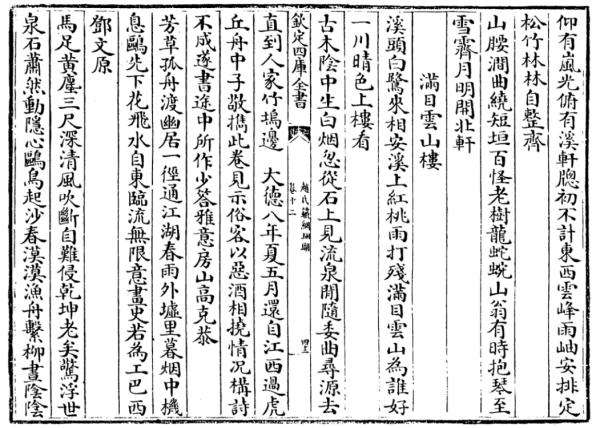 仰有嵐光俯有溪軒牕初不計東西雲峰雨岫安排定
松竹林林自整齊
山腰澗曲繞短垣百怪老樹龍蛇蜿山翁有時抱琴至
雪霽月明開北軒
滿目雲山樓
溪頭白鷺來相安溪上紅桃雨打殘滿目雲山為誰好
一川晴色上樓看
古木陰中生白烟忽從石上見流泉閒隨委曲尋源去
欽定四庫全書
趙氏鐵網珊瑚
卷十二
直到人家竹塢邊 大德八年夏五月還自江西過虎
丘舟中子敬擕此卷見示俗客以惡酒相撓情况構詩
不成遂書途中所作少答雅意房山高克恭
芳草孤舟渡幽居一徑通江湖春雨外墟里暮烟中機
息鷗先下花飛水自東臨流無限意畫史若為工巴西
鄧文原
馬足黄塵三尺深清風吹斷自難侵乾坤老矣驚浮世
泉石蕭然動隱心鷗鳥起沙春漠漠漁舟繫柳晝陰陰